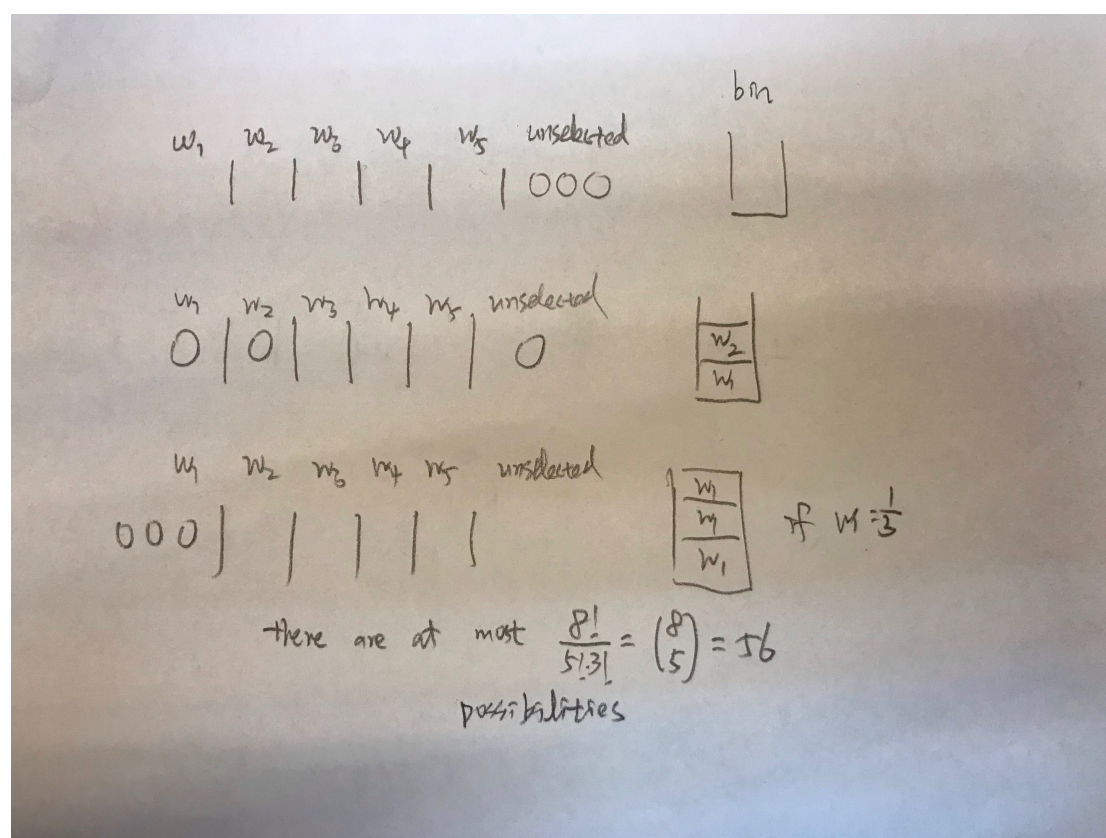 bin
w₁ w₂ w₃ w₄ w₅ unselected
| | | | | 000
w₁ w₂ w₃ w₄ w₅ unselected
0 | 0 | | | | 0
w₂
w₁
w₁ w₂ w₃ w₄ w₅ unselected
000 | | | | |
w₁
w₁
w₁
if w₁ = 1/3
there are at most 8!/5!·3! = (8 5) = 56
possibilities